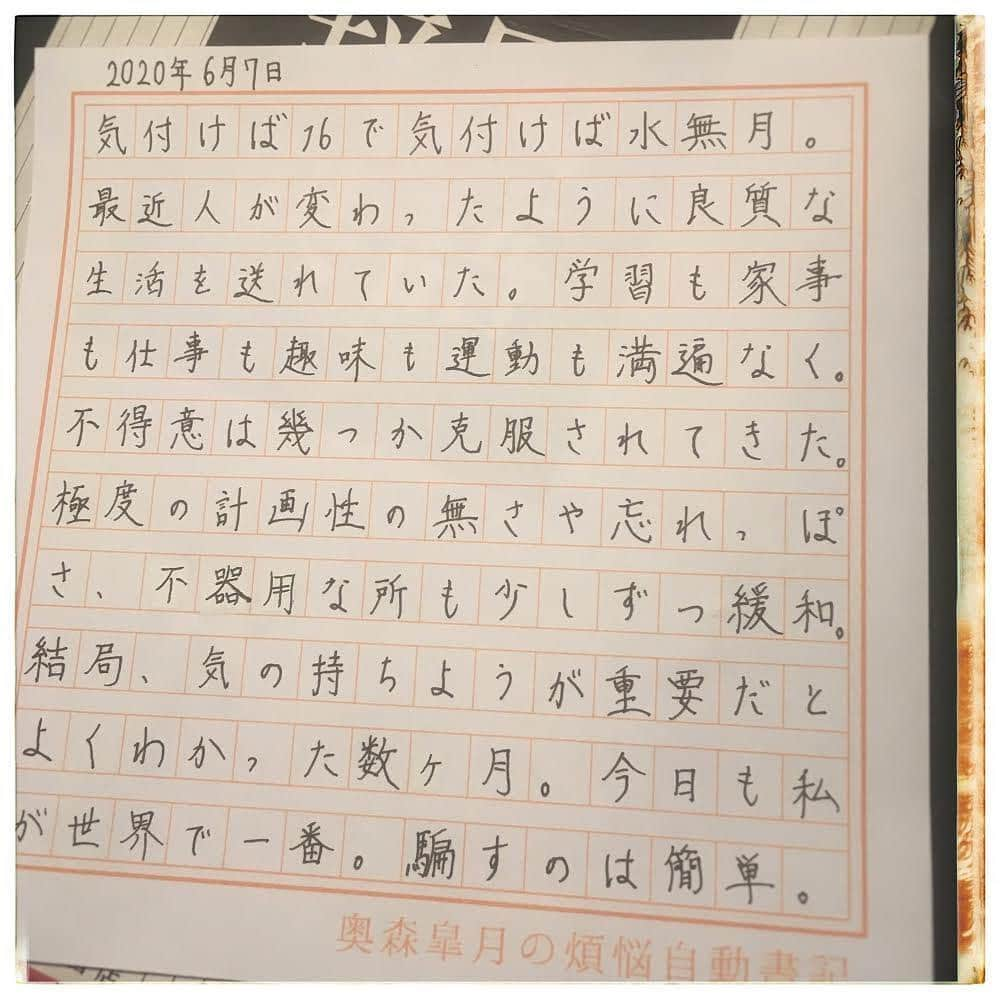 2020年6月7日
気付けば16で気付けば水無月。
最近人が変わったように良質な
生活を送れていた。学習も家事
も仕事も趣味も運動も満遍なく。
不得意は幾つか克服されてきた。
極度の計画性の無さや忘れっぽ
さ、不器用な所も少しずつ緩和。
結局、気の持ちようが重要だと
よくわかった数ヶ月。今日も私
が世界で一番。騙すのは簡単。
奥森皐月の煩悩自動書記